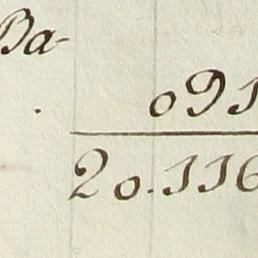 Ba-
. 091
20.116